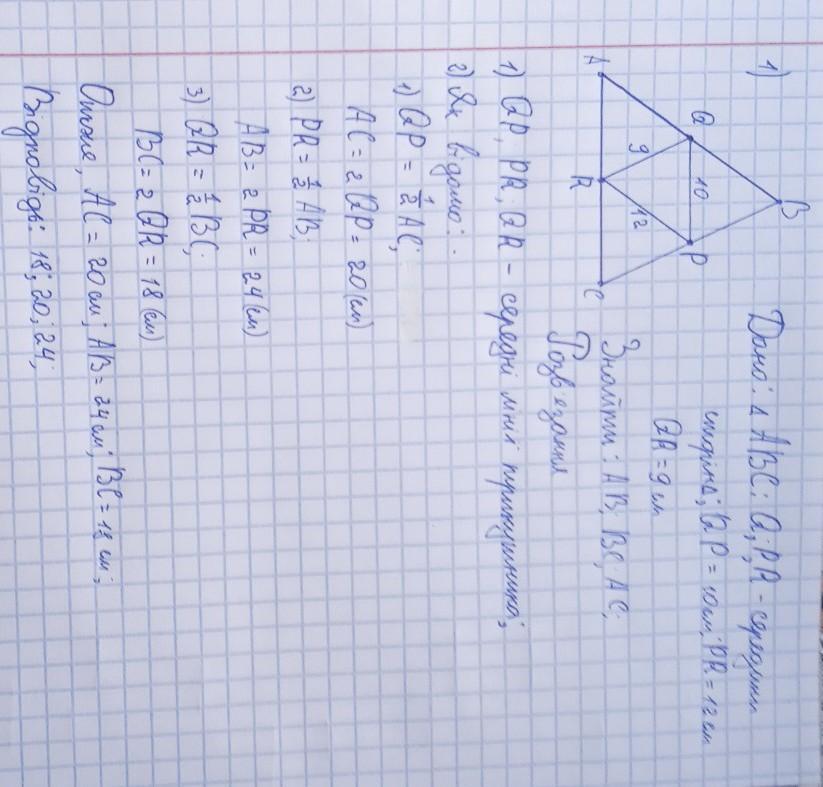 1)
B
Q
10
P
9
12
A
R
C
Дано: Δ ABC; Q; P; R - середини
сторін; QP = 10 см; PR = 12 см
QR = 9 см
Знайти: AB; BC; AC;
Розв'язання
1) QP; PR; QR - середні лінії трикутника;
2) Як відомо:
1) QP = 1/2 AC;
AC = 2 QP = 20 (см)
2) PR = 1/2 AB;
AB = 2 PR = 24 (см)
3) QR = 1/2 BC;
BC = 2 QR = 18 (см)
Отже, AC = 20 см; AB = 24 см; BC = 18 см;
Відповідь: 18; 20; 24;